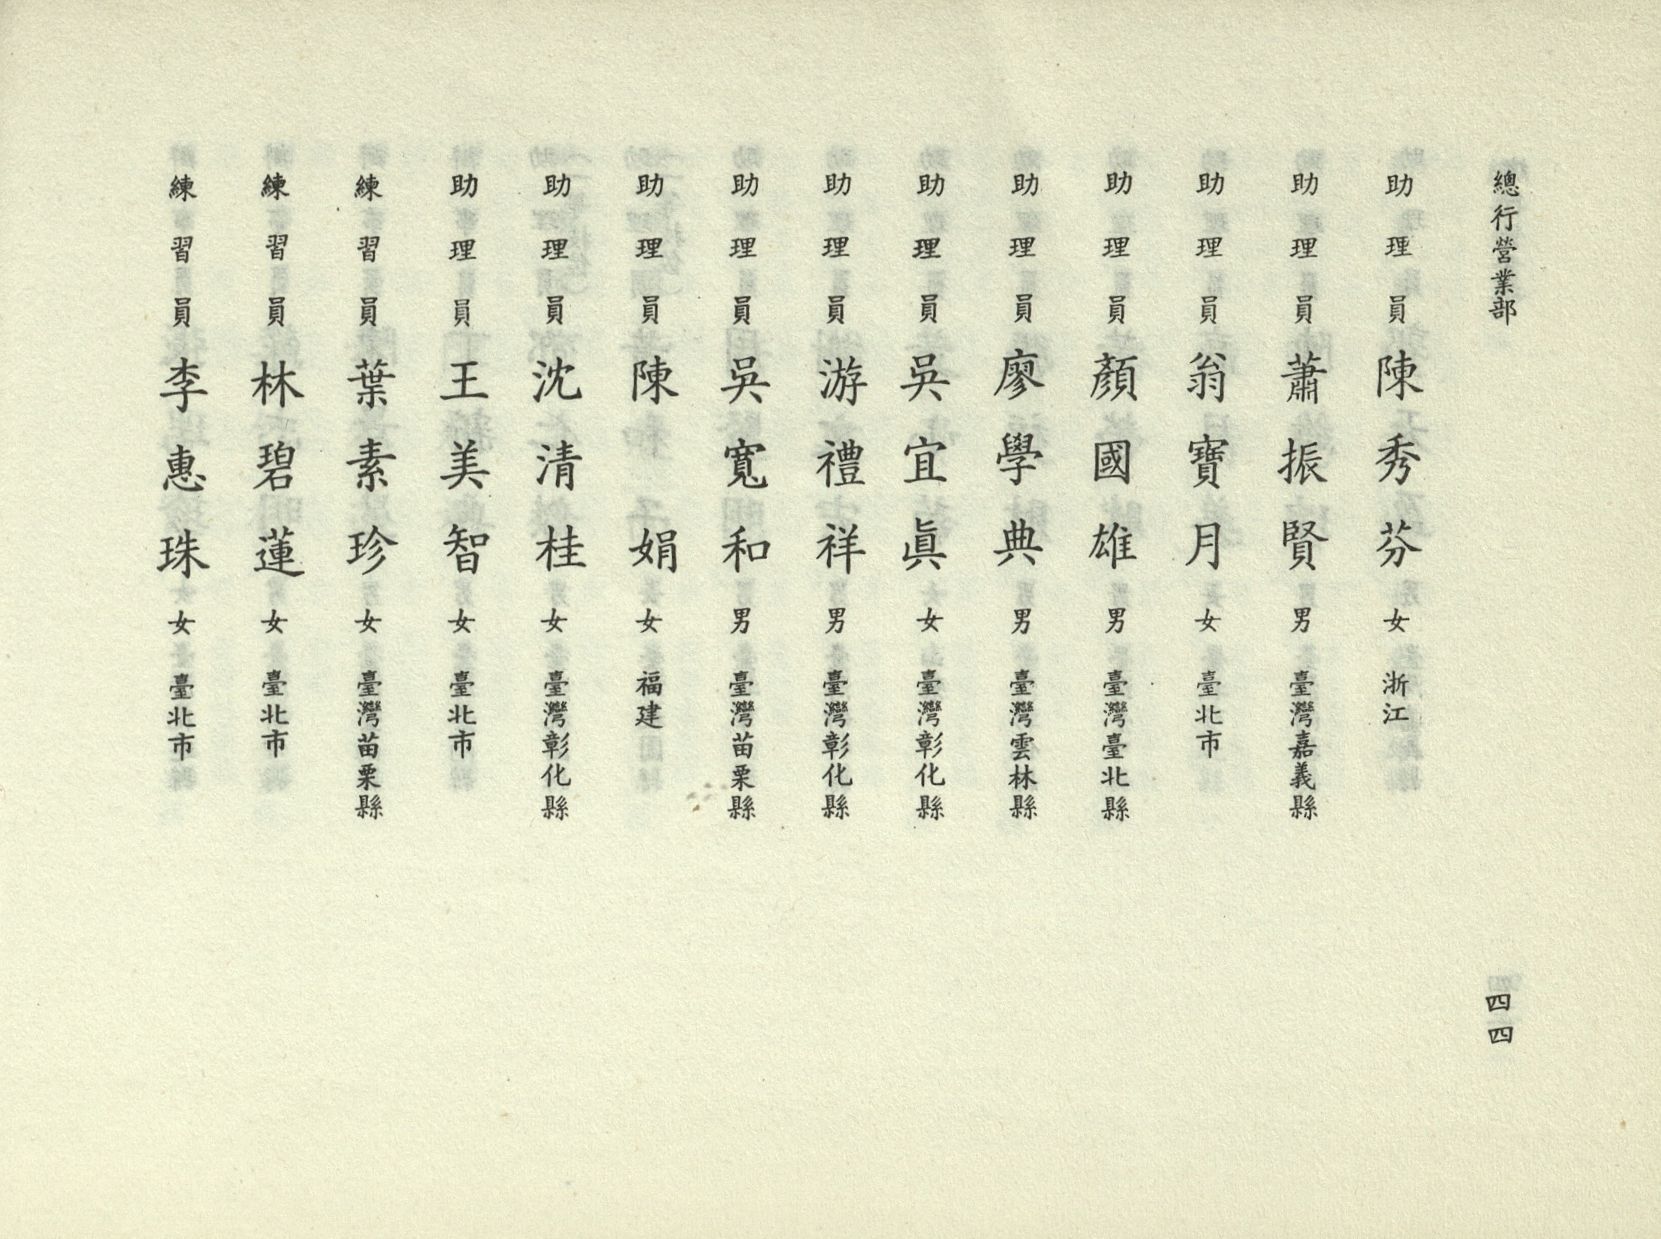 總行營業部
助理員 陳秀芬 女 浙江
助理員 蕭振賢 男 臺灣嘉義縣
助理員 翁寶月 女 臺北市
助理員 顏國雄 男 臺灣臺北縣
助理員 廖學典 男 臺灣雲林縣
助理員 吳宜眞 女 臺灣彰化縣
助理員 游禮祥 男 臺灣彰化縣
助理員 吳寬和 男 臺灣苗栗縣
助理員 陳娟 女 福建
助理員 沈清桂 女 臺灣彰化縣
助理員 王美智 女 臺北市
練習員 葉素珍 女 臺灣苗栗縣
練習員 林碧蓮 女 臺北市
練習員 李惠珠 女 臺北市
四四